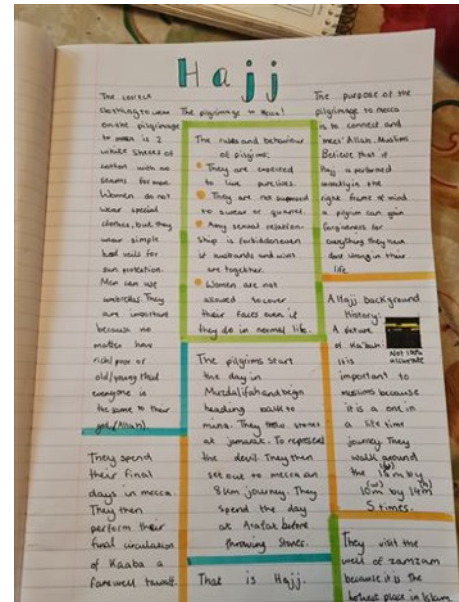 Hajj
The pilgrimage to Mecca!
The correct
clothing to wear
on the pilgrimage
to mecca is 2
white sheets of
cotton with no
seams for men.
Women do not
wear special
clothes, but they
wear simple
head veils for
sun protection.
Men can use
umbrellas. They
are important
because no
matter how
rich/poor or
old/young that
everyone is
the same to their
god (Allah)
They spend
their final
days in mecca.
They then
perform their
final circulation
of Kaaba a
farewell tawaff.
The rules and behaviour
of pilgrims:
They are expected
to live pure lives.
They are not supposed
to swear or quarrel.
Any sexual relation-
ship is forbidden even
if husbands and wives
are together.
Women are not
allowed to cover
their faces even if
they do in normal life.
The pilgrims start
the day in
Muzdalifah and begin
heading back to
mina. They throw stones
at jamarat. To represent
the devil. They then
set out to mecca an
8km journey. They
spend the day
at Arafat before
throwing stones.
That is Hajj.
The purpose of the
pilgrimage to mecca
is to connect and
meet Allah. Muslims
Believe that if
Hajj is performed
correctly in the
right frame of mind
a pilgrim can gain
forgiveness for
everything they have
done wrong in their
life.
A Hajj background
History:
A picture
of Ka'bah:
Not 100%
accurate
it is
important to
muslims because
it is a one in
a life time
journey. They
walk around
the by
(w) (h)
10m by 14m
5 times.
They visit the
well of zamzam
because it is the
holiest place in Islam